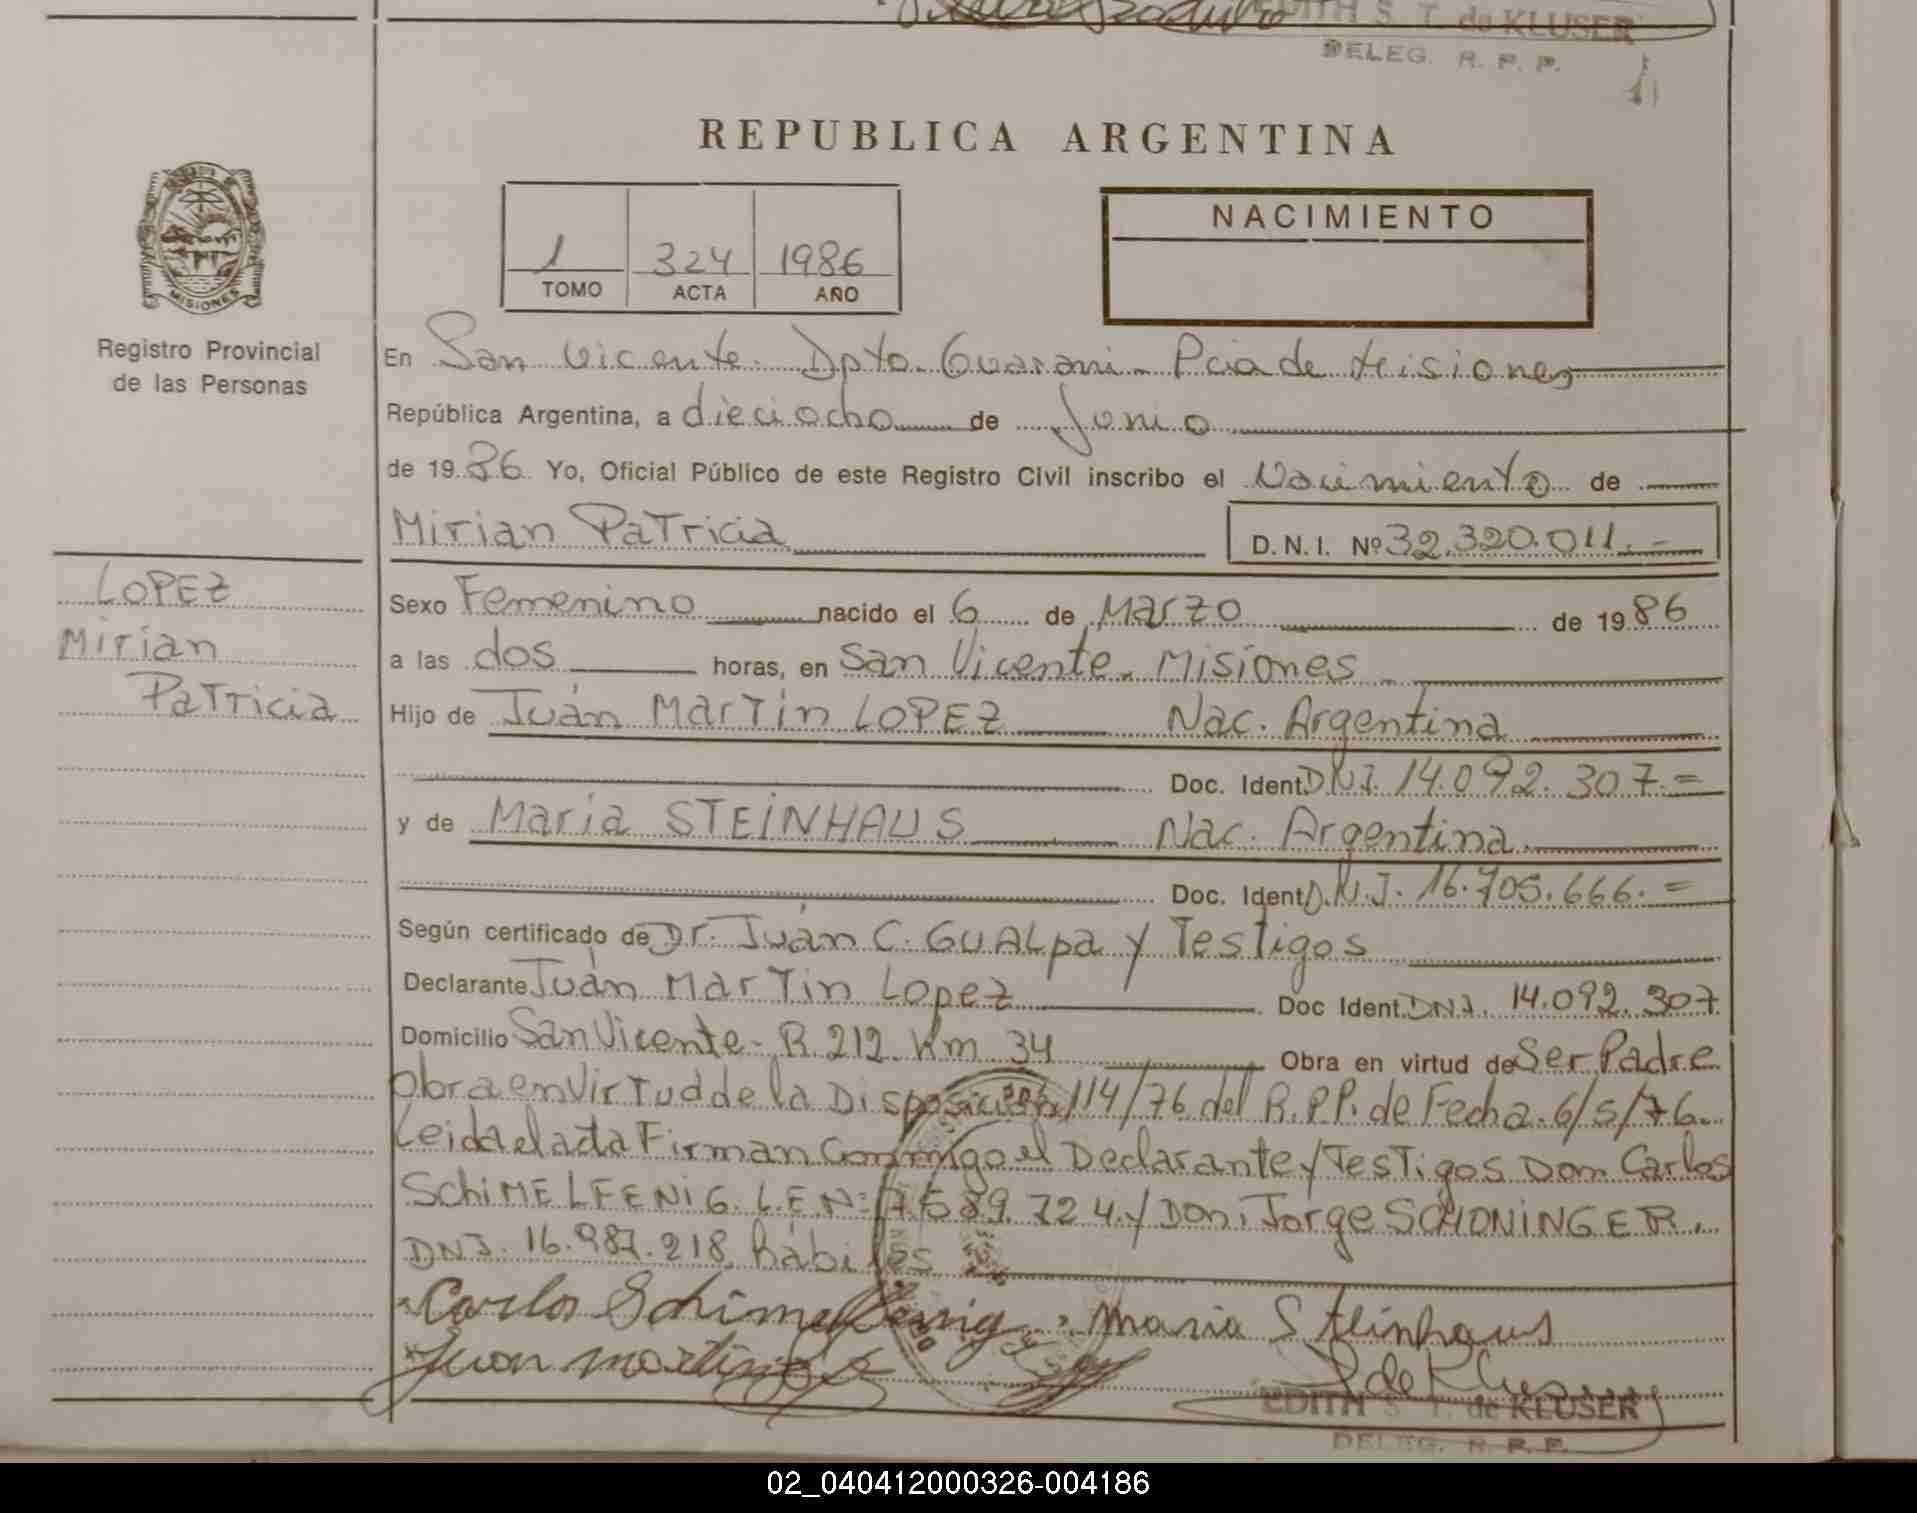 EDITH S. T. de KLUSER
DELEG. R. P. P.
REPUBLICA ARGENTINA
1 324 1986
TOMO ACTA AÑO
NACIMIENTO
MISIONES
Registro Provincial
de las Personas
En San Vicente. Dpto. Guarani. Pcia de Misiones
República Argentina, a dieciocho de Junio
de 1986 Yo, Oficial Público de este Registro Civil inscribo el Nacimiento de
Mirian Patricia D.N.I. Nº 32.320.011.-
LOPEZ
Mirian
Patricia
Sexo Femenino nacido el 6 de Marzo de 1986
a las dos horas, en San Vicente. Misiones
Hijo de Juán Martin LOPEZ Nac. Argentina
Doc. Ident. DNI. 14.092.307.=
y de Maria STEINHAUS Nac. Argentina
Doc. Ident. D.N.I. 16.705.666.=
Según certificado de Dr. Juán C. GUALpa y Testigos
Declarante Juán Martin Lopez Doc Ident. DNI. 14.092.307.
Domicilio San Vicente - R. 212. Km 34 Obra en virtud de Ser Padre
Obra en Virtud de la Disposición 114/76 del R.P.P. de Fecha. 6/5/76.
Leida el acta Firman Conmigo el Declarante y Testigos Don Carlos
SCHIMELFENIG. L.E.N= 7.589.724. y Don. Jorge SCHONINGER.
DNI. 16.987.218. Hábiles
Carlos Schimelfenig Maria Steinhaus
Juan martin
S de Kluser
EDITH S. T. de KLUSER
DELEG. R. P. P.
02_040412000326-004186